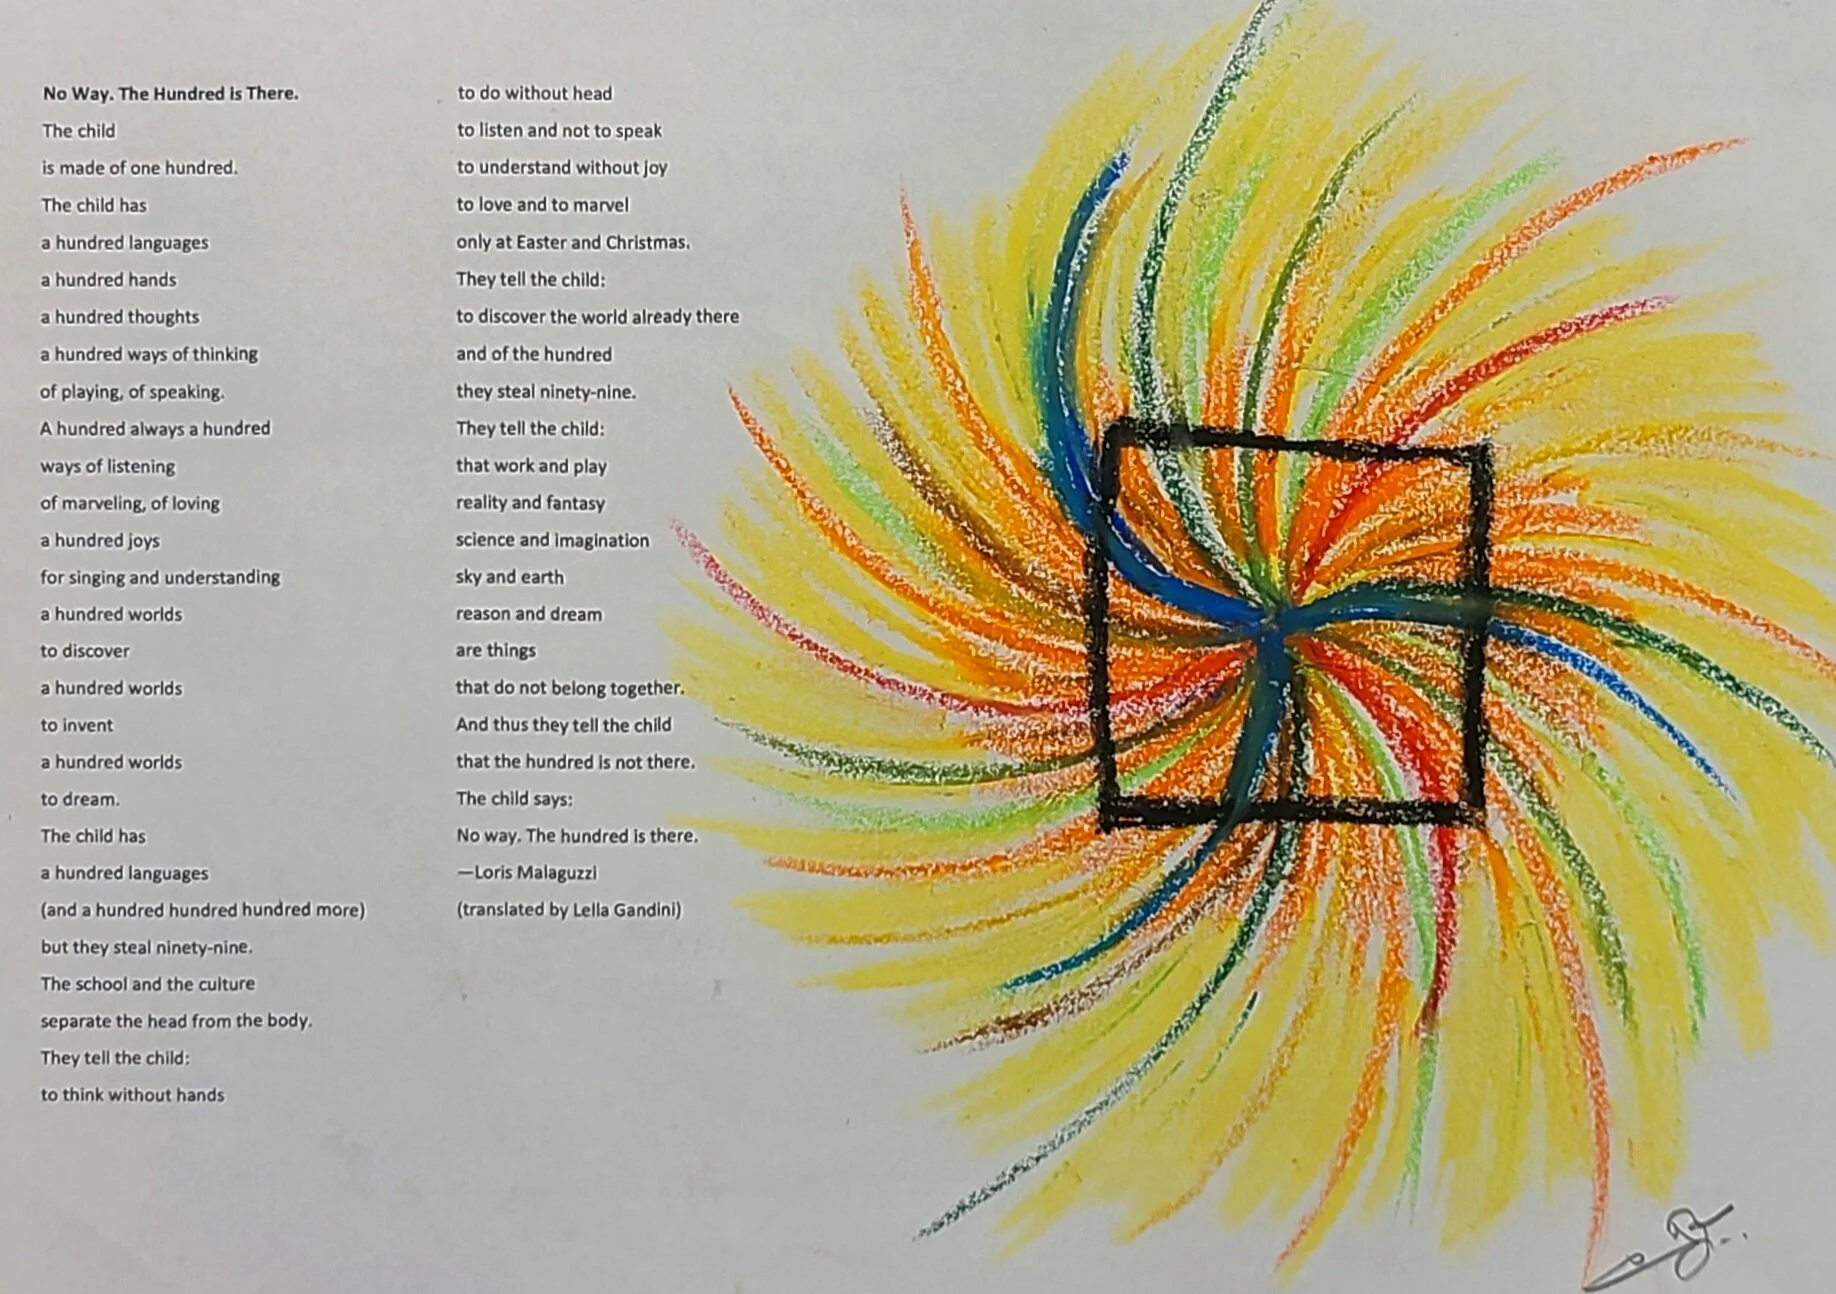 No Way. The Hundred is There.
The child
is made of one hundred.
The child has
a hundred languages
a hundred hands
a hundred thoughts
a hundred ways of thinking
of playing, of speaking.
A hundred always a hundred
ways of listening
of marveling, of loving
a hundred joys
for singing and understanding
a hundred worlds
to discover
a hundred worlds
to invent
a hundred worlds
to dream.
The child has
a hundred languages
(and a hundred hundred hundred more)
but they steal ninety-nine.
The school and the culture
separate the head from the body.
They tell the child:
to think without hands
to do without head
to listen and not to speak
to understand without joy
to love and to marvel
only at Easter and Christmas.
They tell the child:
to discover the world already there
and of the hundred
they steal ninety-nine.
They tell the child:
that work and play
reality and fantasy
science and imagination
sky and earth
reason and dream
are things
that do not belong together.
And thus they tell the child
that the hundred is not there.
The child says:
No way. The hundred is there.
—Loris Malaguzzi
(translated by Lella Gandini)